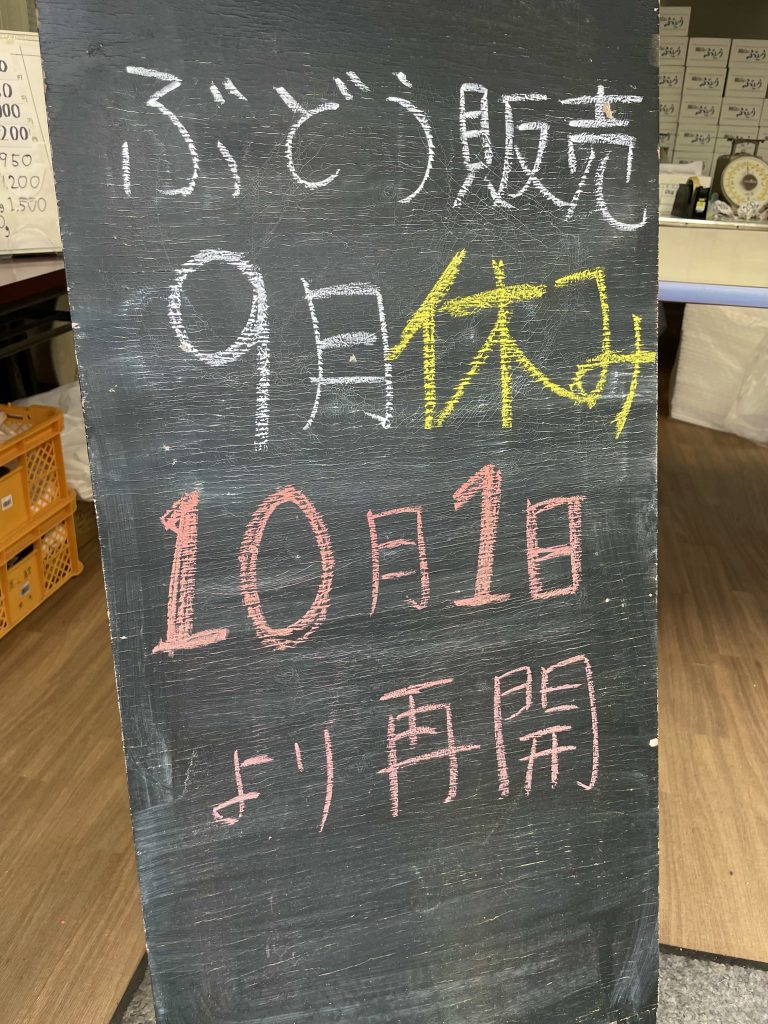 ぶどう販売
9月休み
10月1日
より再開
200
950
1200
1.500
ぶどう